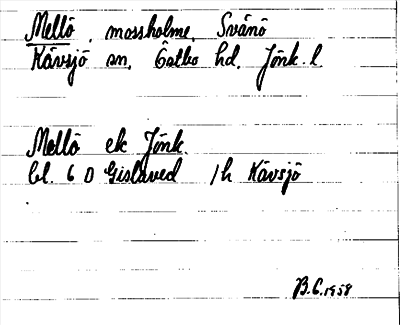 Mellö, mossholme, Svånö
Kävsjö sn, Östbo hd, Jönk. l
Mellö ek Jönk.
bl. 6 D Gislaved /h Kävsjö
B.G. 1958